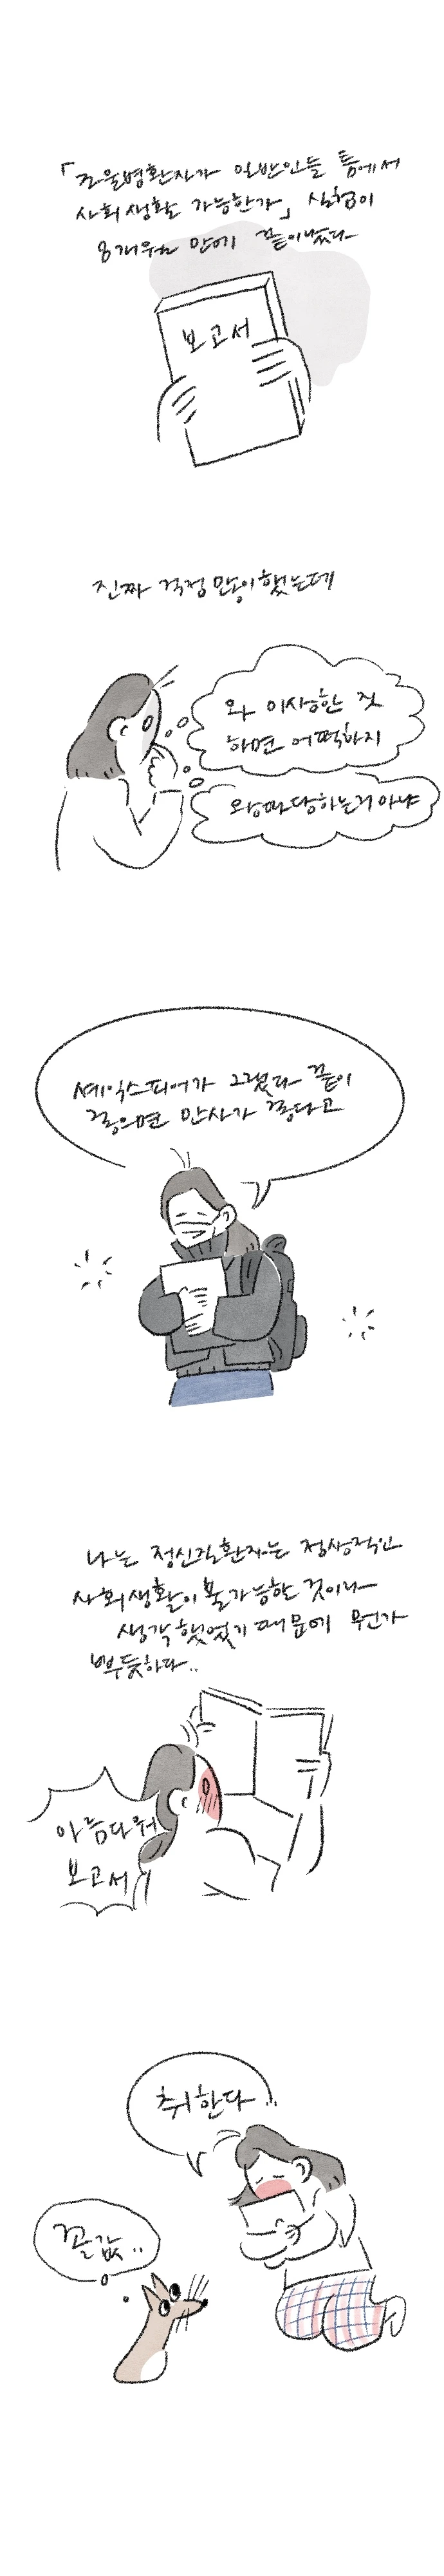 「조울병환자가 일반인들 틈에서
사회생활 가능한가」 실험이
8개월 만에 끝이났다
보고서
진짜 걱정 많이했는데
와 이상한 짓
하면 어떡하지
왕따당하는거 아냐
셰익스피어가 그랬다 끝이
좋으면 만사가 좋다고
나는 정신질환자는 정상적인
사회생활이 불가능한 것이라
생각했었기 때문에 뭔가
뿌듯하다..
아름다워
보고서
취한다..
꼴값..